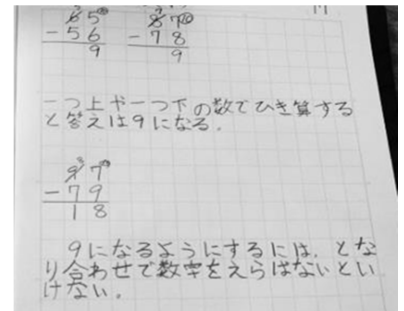 65 87
-56 -78
9 9
一つ上や一つ下の数でひき算する
と答えは9になる。
97
-79
18
9になるようにするには、とな
り合わせで数字をえらばないとい
けない。